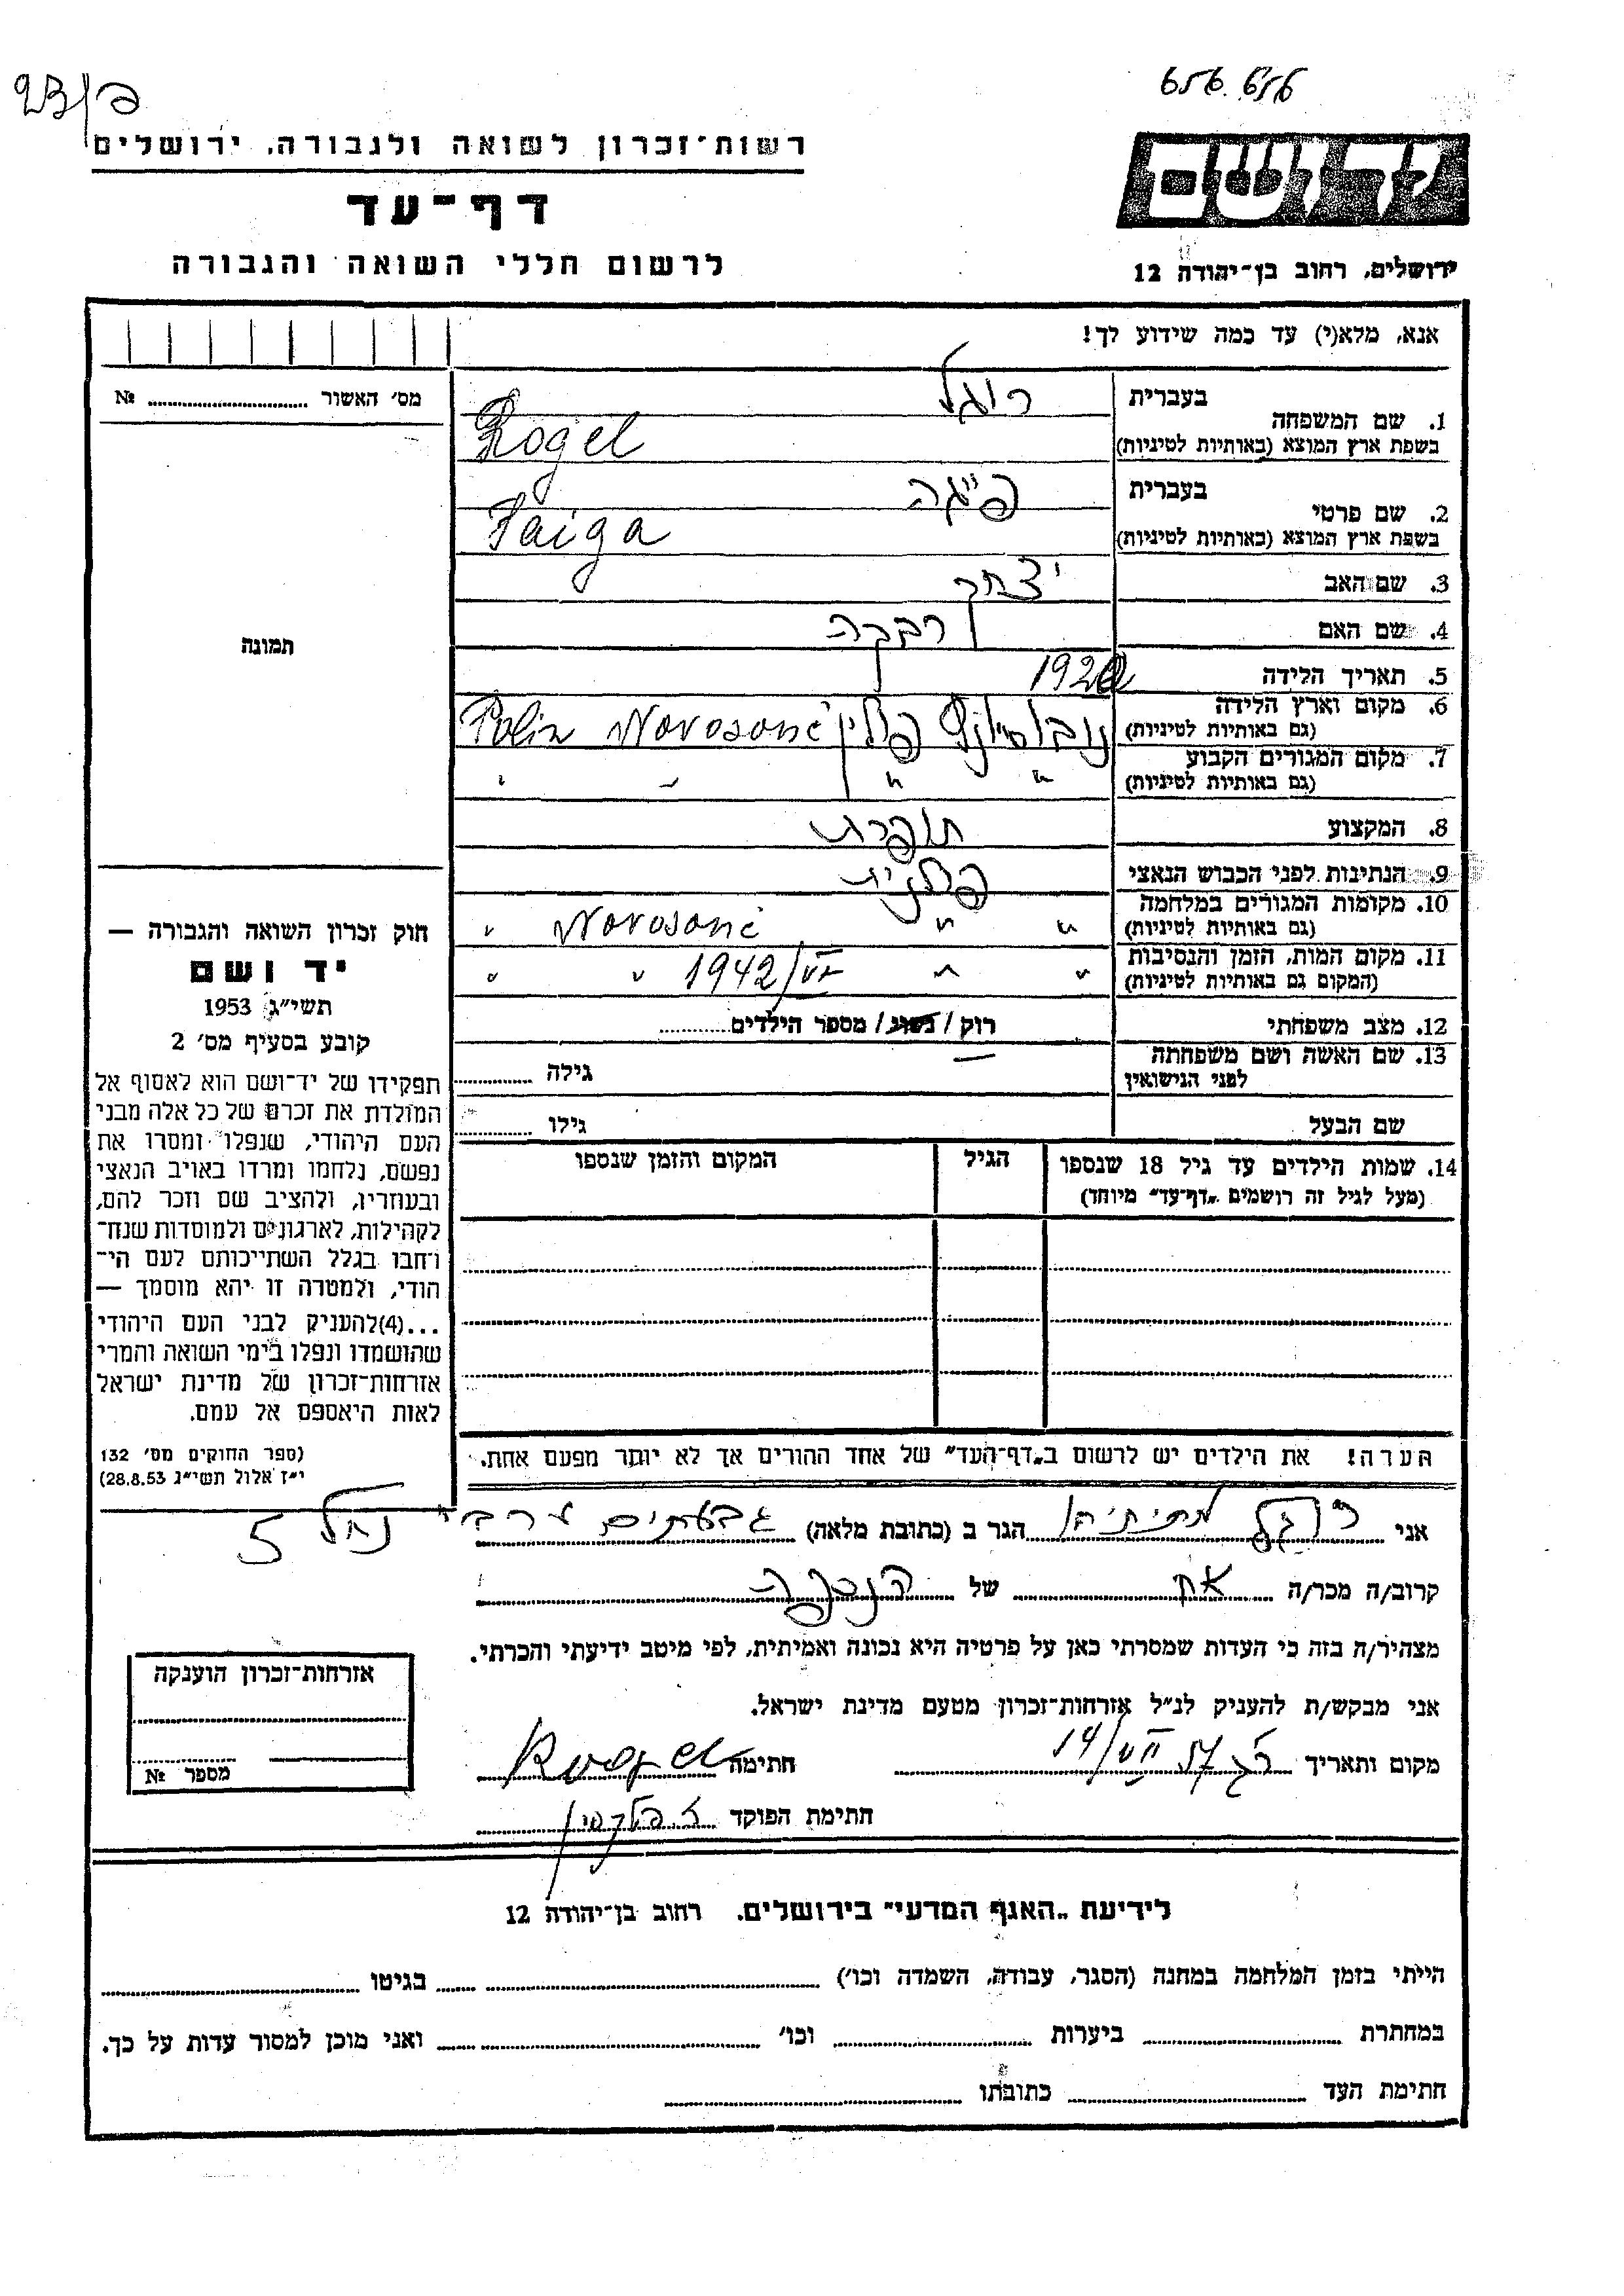 656.656
פ/23
ידושם
רשות־זכרון לשואה ולגבורה, ירושלים
דף־עד
לרשום חללי השואה והגבורה
ירושלים, רחוב בן־יהודה 12
אנא, מלא(י) עד כמה שידוע לך!
מס׳ האשור № 
1. שם המשפחה
בעברית רוגל
בשפת ארץ המוצא (באותיות לטיניות) Rogel
2. שם פרטי
בעברית פייגה
בשפת ארץ המוצא (באותיות לטיניות) Faiga
3. שם האב יצחק
4. שם האם רבקה
5. תאריך הלידה 1920
6. מקום וארץ הלידה
(גם באותיות לטיניות) פולין Novosonć Polin
7. מקום המגורים הקבוע
(גם באותיות לטיניות) " " " "
8. המקצוע תופרת
9. הנתינות לפני הכבוש הנאצי פולנית
10. מקומות המגורים במלחמה
(גם באותיות לטיניות) " " Novosonć "
11. מקום המות, הזמן והנסיבות
(המקום גם באותיות לטיניות) " " 1942/VI " "
12. מצב משפחתי רוק / נשוי / מספר הילדים
13. שם האשה ושם משפחתה
לפני הנישואין — גילה
שם הבעל גילו
14. שמות הילדים עד גיל 18 שנספו
(מעל לגיל זה רושמים „דף־עד״ מיוחד)
הגיל
המקום והזמן שנספו
תמונה
חוק זכרון השואה והגבורה —
יד ושם
תשי״ג 1953
קובע בסעיף מס׳ 2
תפקידו של יד־ושם הוא לאסוף אל
המולדת את זכרם של כל אלה מבני
העם היהודי, שנפלו ומסרו את
נפשם, נלחמו ומרדו באויב הנאצי
ובעוזריו, ולהציב שם וזכר להם,
לקהילות, לארגונים ולמוסדות שנח־
רחבו בגלל השתייכותם לעם הי־
הודי, ולמטרה זו יהא מוסמך —
...(4)להעניק לבני העם היהודי
שהושמדו ונפלו בימי השואה והמרי
אזרחות־זכרון של מדינת ישראל
לאות היאספם אל עמם.
(ספר החוקים מס׳ 132
י״ז אלול תשי״ג 28.8.53)
הערה! את הילדים יש לרשום ב„דף־העד״ של אחד ההורים אך לא יותר מפעם אחת.
אני רוגל מתיתיהו הגר ב (כתובת מלאה) גבעתיים ערבי נחל 5
קרוב/ה מכר/ה אח של הנספה
מצהיר/ה בזה כי העדות שמסרתי כאן על פרטיה היא נכונה ואמיתית, לפי מיטב ידיעתי והכרתי.
אני מבקש/ת להעניק לנ״ל אזרחות־זכרון מטעם מדינת ישראל.
מקום ותאריך 14/VII 57 חתימה
חתימת הפוקד
אזרחות־זכרון הוענקה
מספר №
לידיעת „האגף המדעי״ בירושלים. רחוב בן־יהודה 12
הייתי בזמן המלחמה במחנה (הסגר, עבודה, השמדה וכו׳) בגיטו
במחתרת ביערות וכו׳ ואני מוכן למסור עדות על כך.
חתימת העד כתובתו